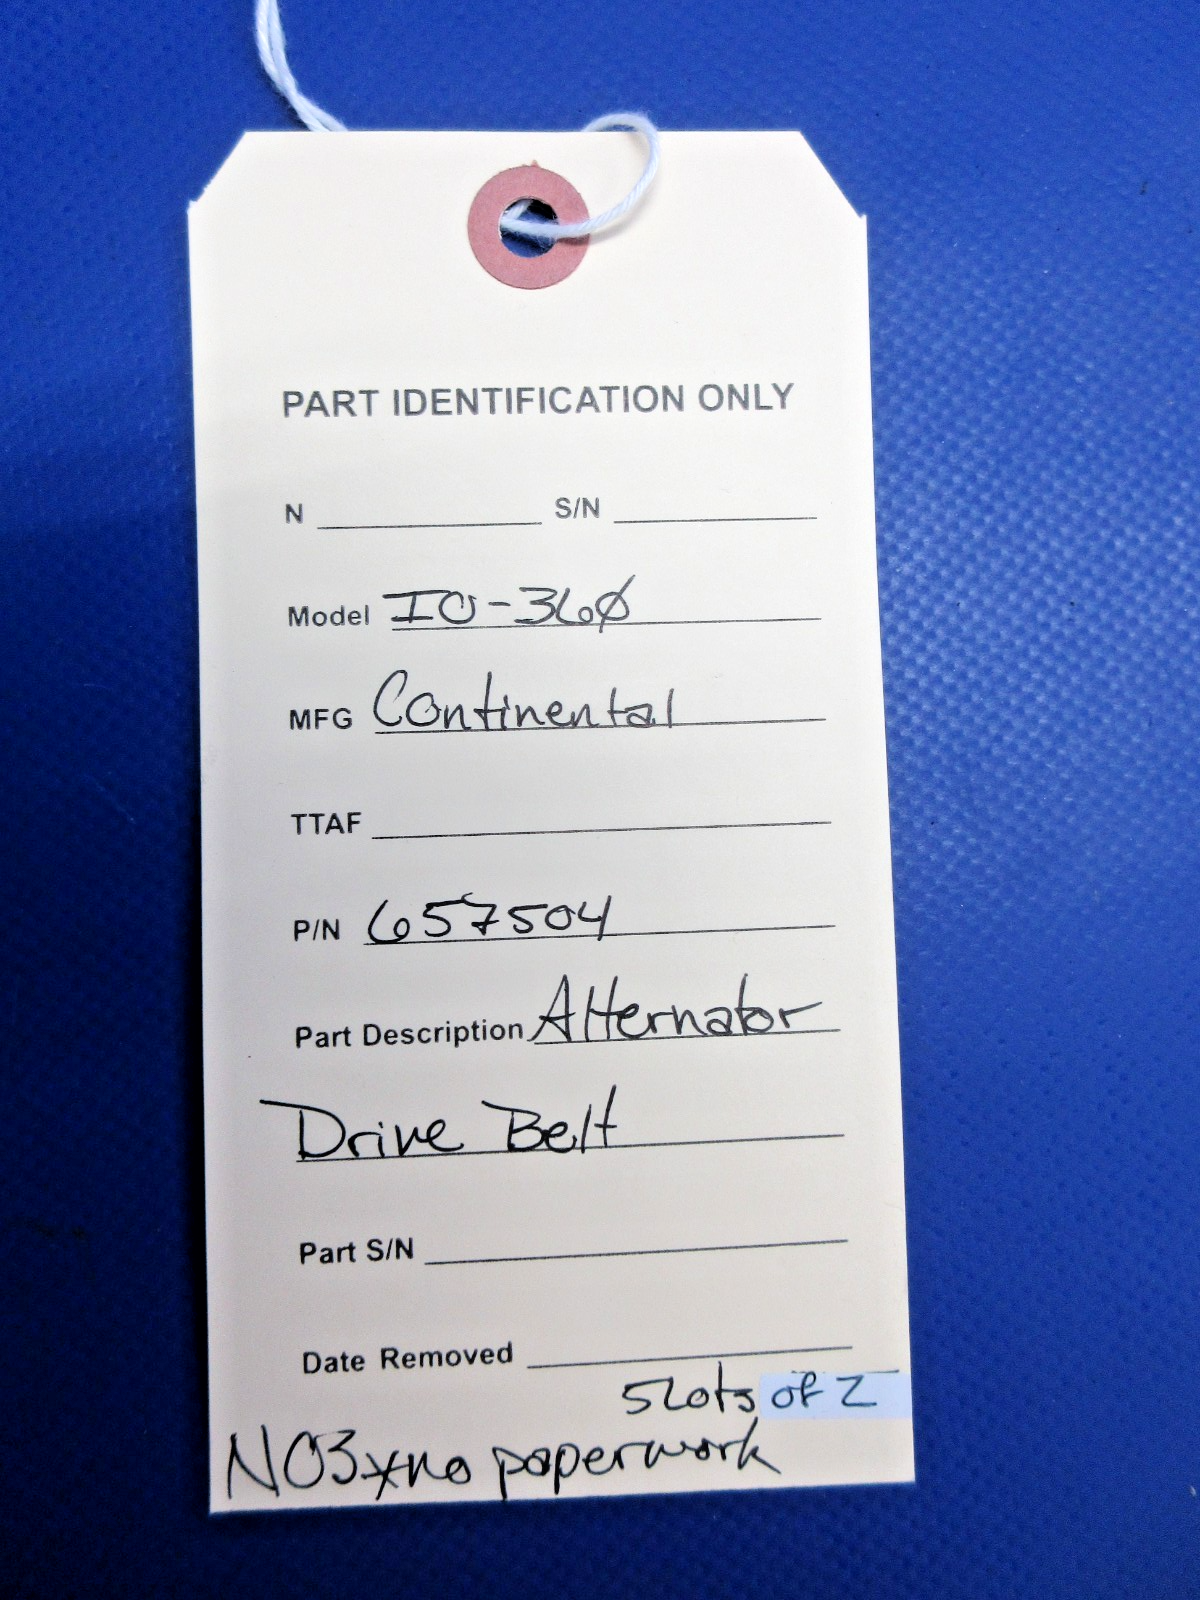 PART IDENTIFICATION ONLY
N S/N
Model IO-360
MFG Continental
TTAF
P/N 657504
Part Description Alternator
Drive Belt
Part S/N
Date Removed
5 Lots of 2
NO3 *no paperwork